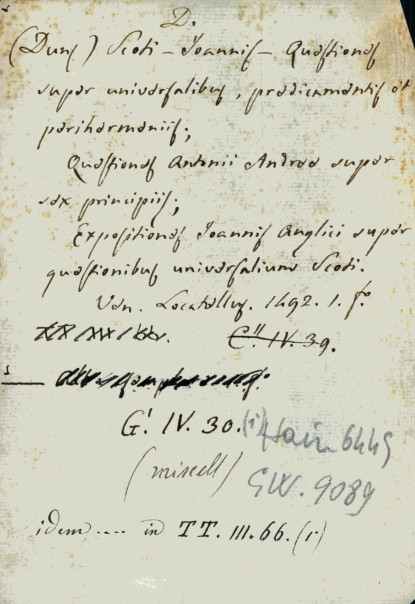 D.
(Duns) Scoti - Joannis - Quæstiones
super universalibus, prædicamentis et
perihermeniis;
Quæstiones Antonii Andreæ super
sex principiis;
Expositiones Joannis Anglici super
quæstionibus universalium Scoti.
Ven. Locatellus. 1492. 1. fo.
C". IV. 39.
G' IV. 30. (1) Hain 6445
(miscell) GW. 9089
idem .... in TT. III. 66. (1)